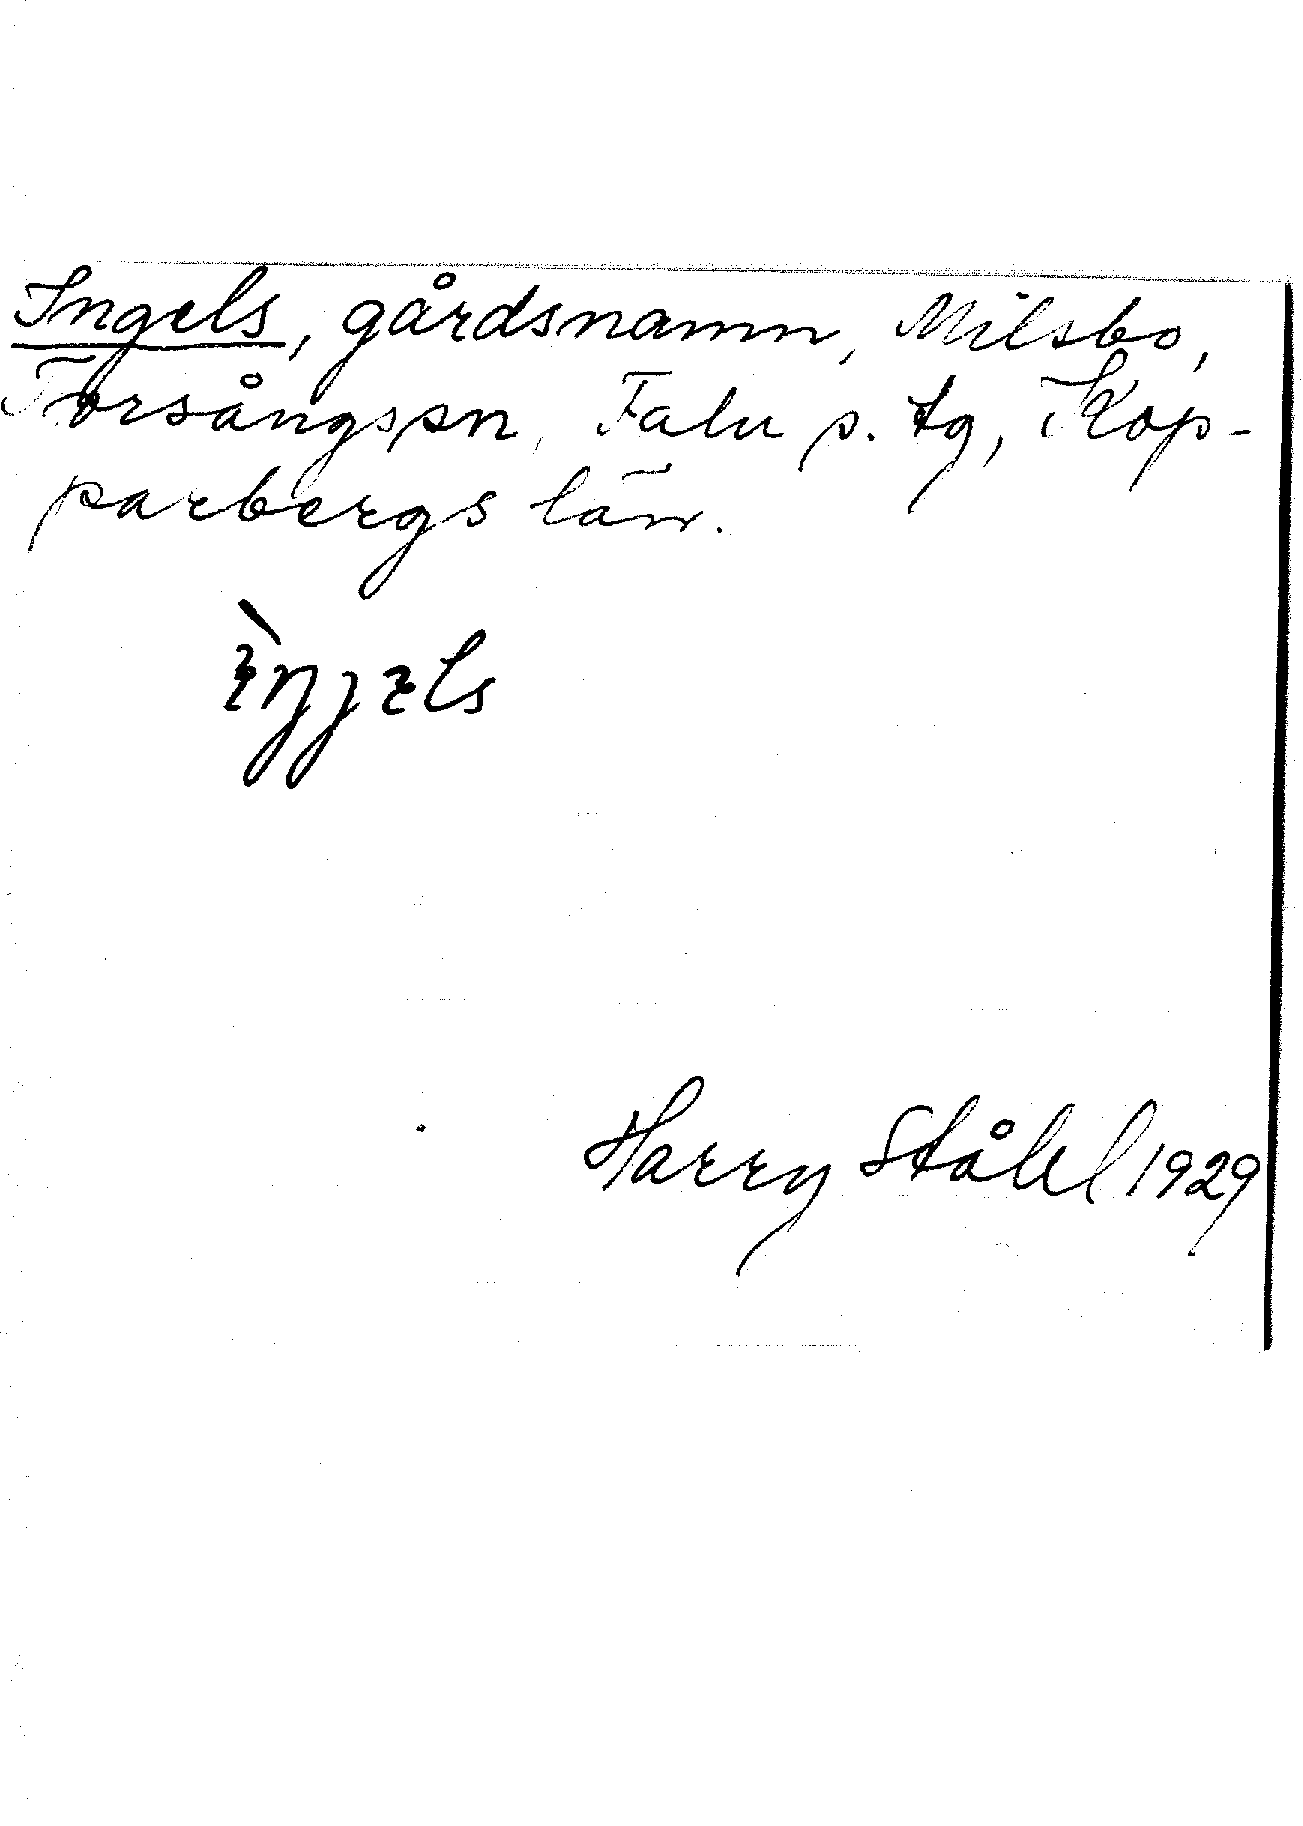 Ingels, gårdsnamn, Milsbo,
Torsångs sn, Falu s. tg, Kop-
parbergs län.
Harry Ståhl 1929